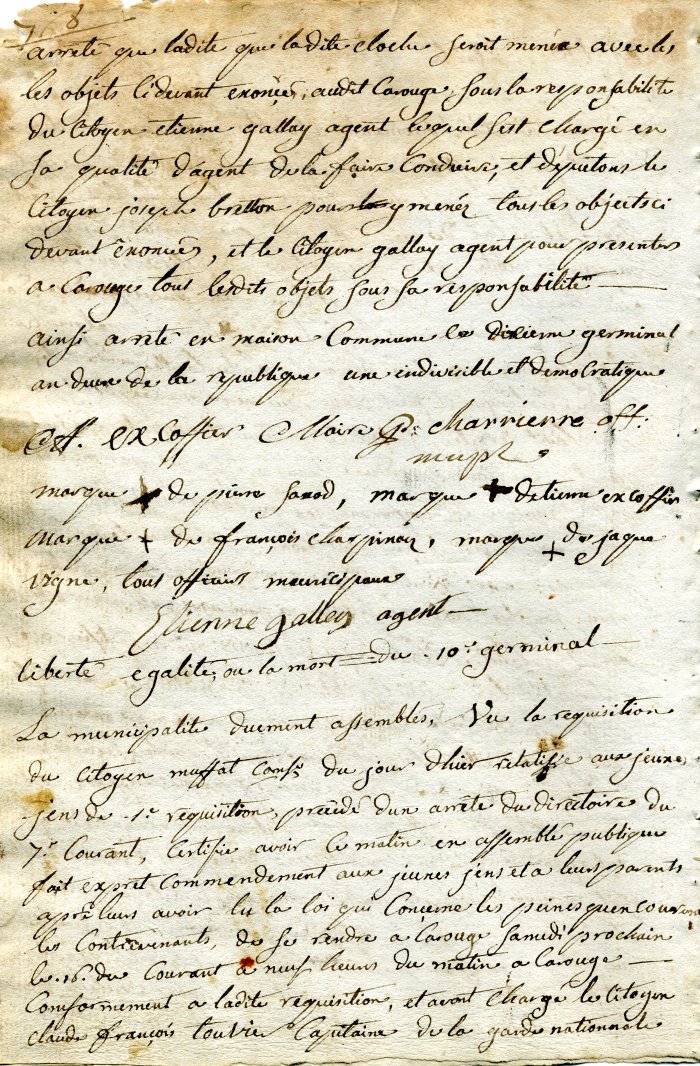 78
arreté que ladite que ladite cloche seroit menée avec les
les objets cidevant enoncés, audit Carouge, sous la responsabilité
du Citoyen etienne gallay agent lequel sest chargé en
sa qualité d'agent de la faire Conduire, et deputons le
Citoyen joseph bretton pour y menér tous les objects ci
devant énoncées, et le Citoyen gallay agent pour presenter
a Carouge tous lesdits objets sous sa responsabilité
ainsi arreté en maison Commune le dixieme germinal
an deux de la republique une indivisible et democratique
Excoffier Maire charrierre off.
mupl
marque + de pierre savod, marque + detienne excoffier
marque + de françois charpinaz, marque + de jaque
vigne, tous officiers municipaux
Etienne galley agent
liberté egalité, ou la mort = du 10e germinal
La municipalité duement assemblés, Vu la requisition
du Citoyen muffat Consr du jour d'hier relatifie aux jeunes
jens de 1e requisition, précédé dun arrêté du directoire du
7e Courant, Certifie avoir ce matin en assemblé publique
fait exprèt Commendement aux jeunes jens et a leurs parents
aprèr leurs avoir lu la loi qui Concerne les peines quencourent
les Contrevenants, de se rendre a Carouge Samedi prochain
le .16. du Courant a neuf heures du matin a Carouge
Comformement a ladite requisition, et avont Chargé le Citoyen
Claude françois touvier Capitaine de la garde nationnale